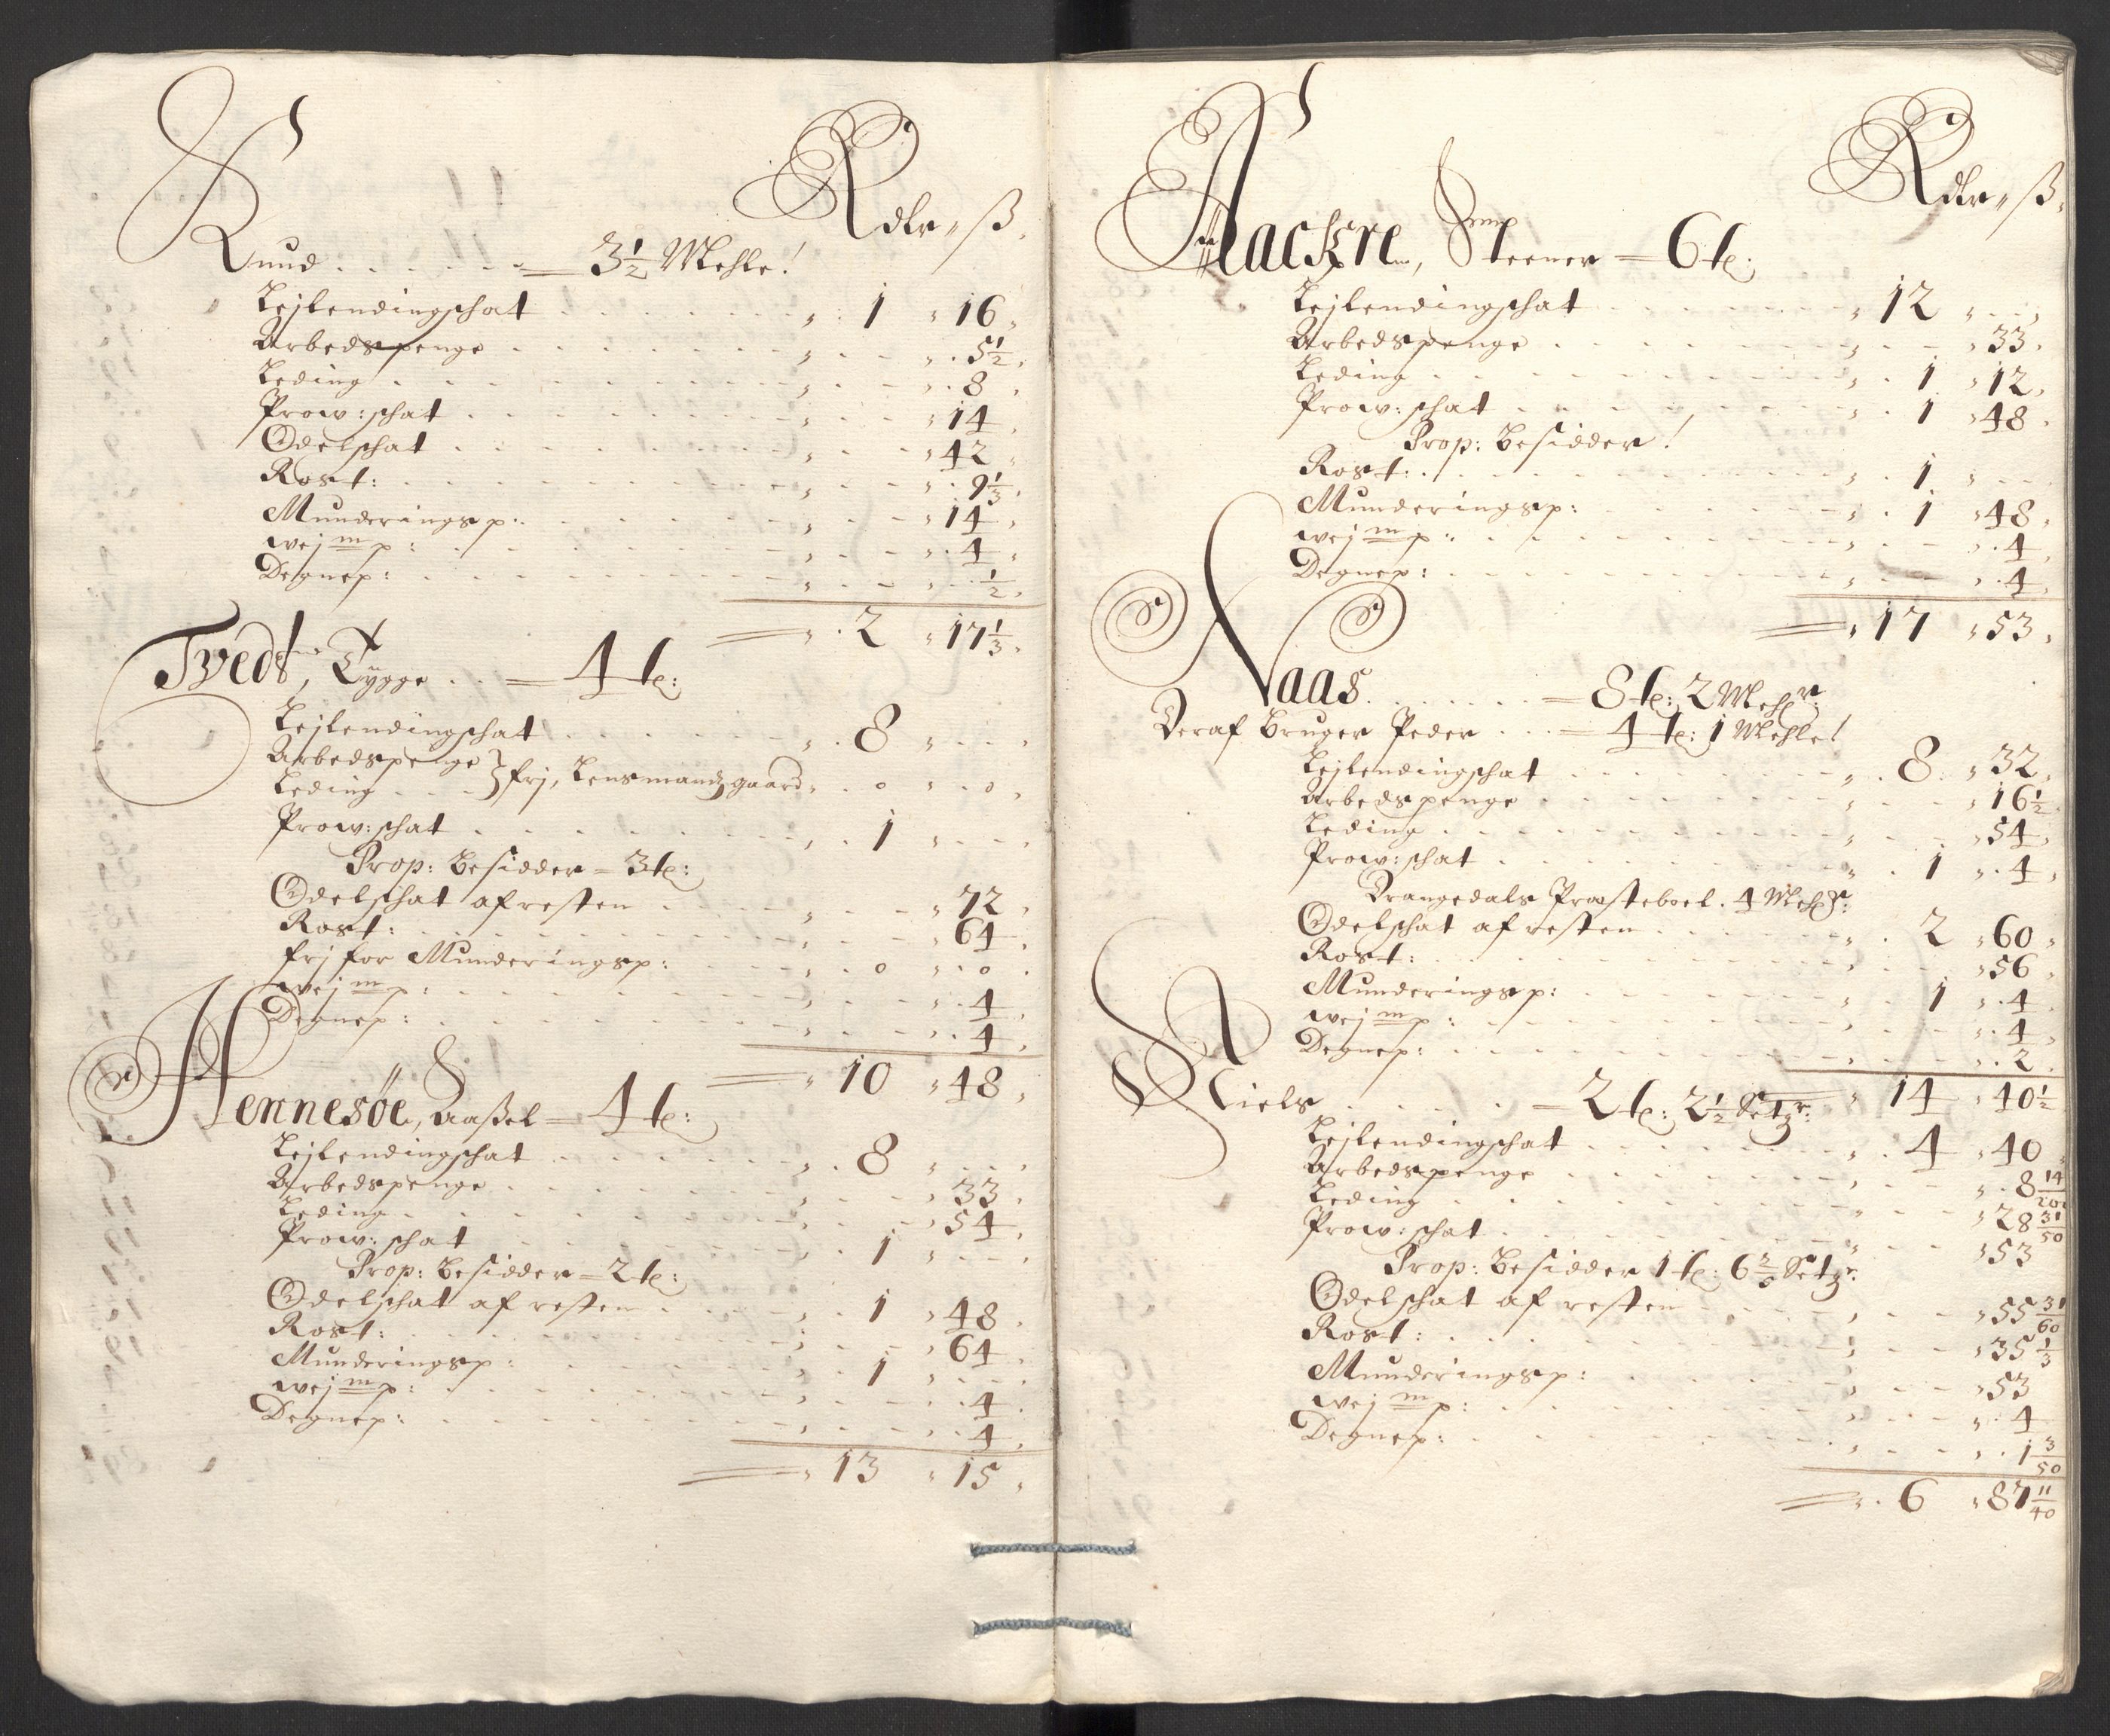 Rdlr ß
Knud 3½ Mehle!
Lejlendingschat 1 16
Arbedspenge 5½
Leding 8
Prow: schat 14
Odelschat 42
Rost: 9⅓
Munderingsp: 14
wej m p: 4
Degnep: ½
2 17⅓
Tvedt, Tygge 4 t:
Lejlendingschat 8
Arbedspenge
Leding } frj, Lensmands gaard 0 0
Prow: schat 1
Prop: Besidder 3 t:
Odelschat af resten 72
Rost: 64
frj for Munderingsp: 0 0
wej m p: 4
Degnep: 4
10 48
Hennesøe, Aaßel 4 t:
Lejlendingschat 8
Arbedspenge 33
Leding 54
Prow: schat 1
Prop: Besidder 2 t:
Odelschat af resten 1 48
Rost: 64
Munderingsp: 1
wej m p: 4
Degnep: 4
13 15
Rdlr ß
Aackre, Steener 6 t:
Lejlendingschat 12
Arbedspenge 33
Leding 1 12
Prow: schat 1 48
Prop: Besidder!
Rost: 1
Munderingsp: 1 48
wej m p: 4
Degnep: 4
17 53
Naas 8 t: 2 Mehlr
Deraf Bruger Peder 4 t: 1 Mehle!
Lejlendingschat 8 32
Arbedspenge 16½
Leding 54
Prow: schat 1 4
Drangedals Præsteboel 4 Mehlr:
Odelschat af resten 2 60
Rost: 56
Munderingsp: 1 4
wej m p: 4
Degnep: 2
14 40½
Niels 2 t: 2½ Setzr:
Lejlendingschat 4 40
Arbedspenge 8 14/20
Leding 28 31/50
Prow: schat 53
Prop: Besidder 1 t: 6 Setzr:
Odelschat af resten 55 31/60
Rost: 35⅓
Munderingsp: 53
wej m p: 4
Degnep: 1 3/50
6 87 11/40